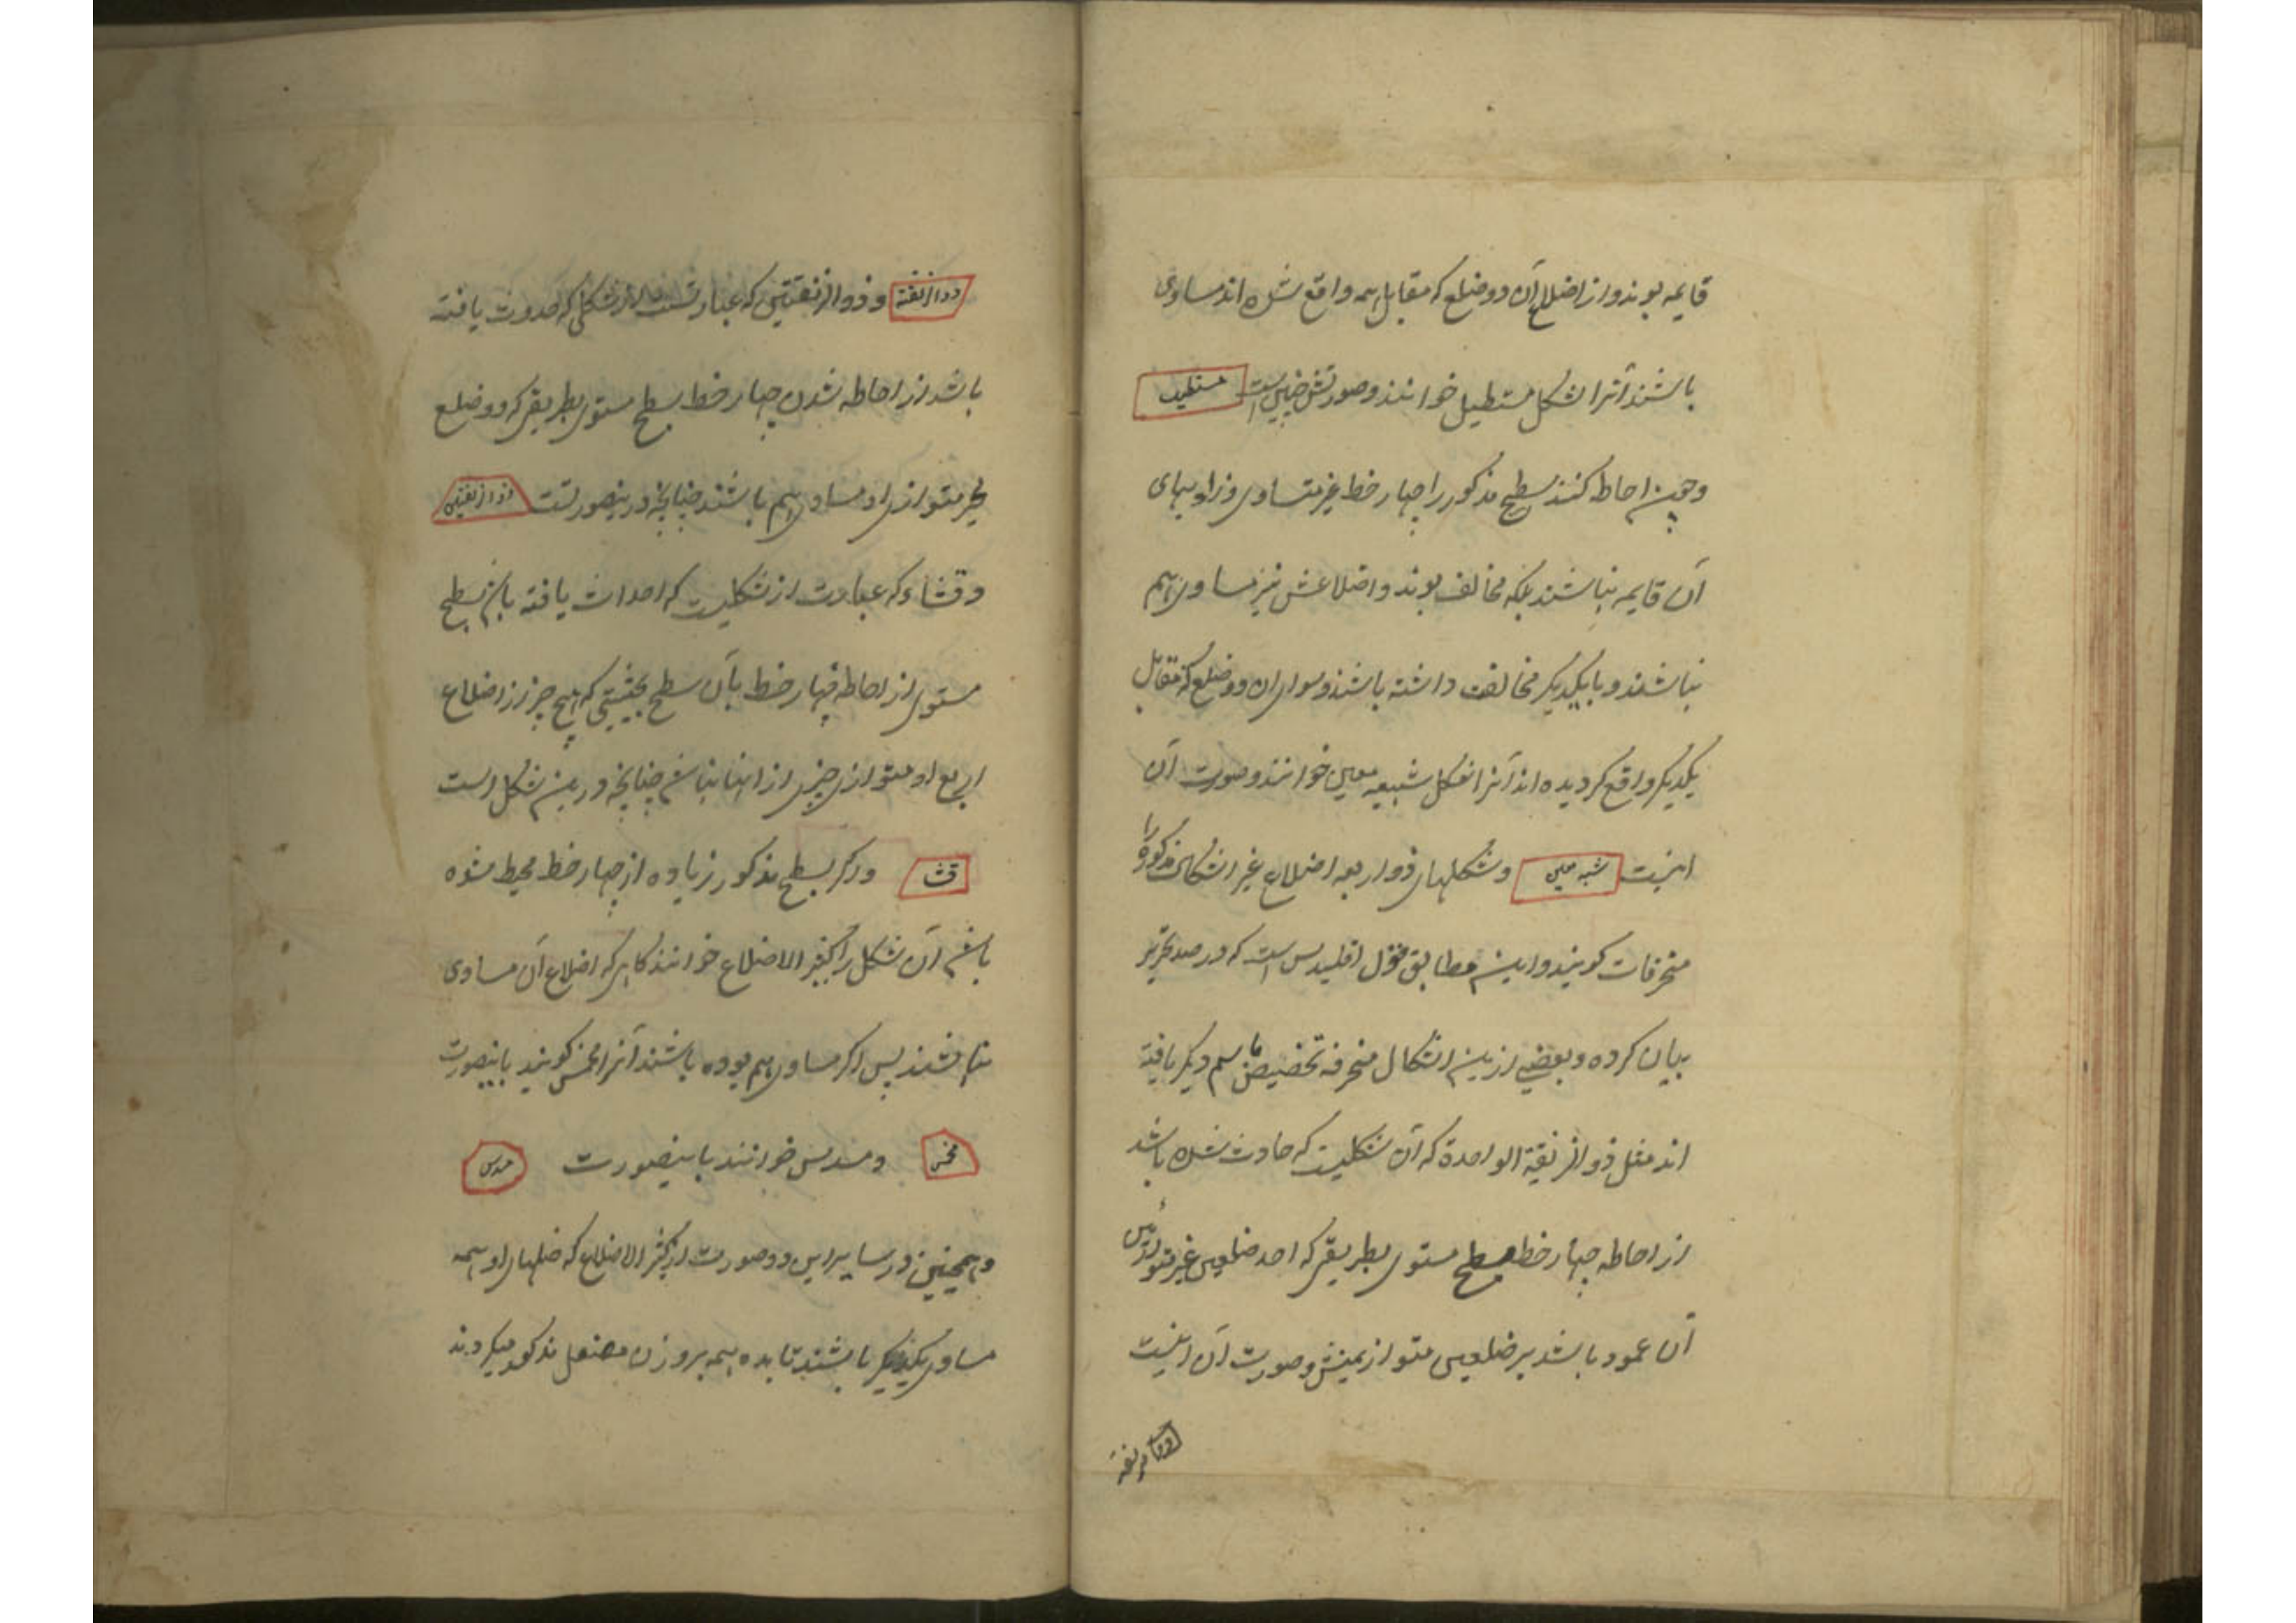 قایمه بوند و از اضلاع آن دو ضلع که مقابل هم واقع شده اند مساوی
باشند آنرا شکل مستطیل خوانند و صورتش چنین است مستطیل
و چون احاطه کنند سطح مذکور را چهار خط غیر متساوی و زاویهای
آن قایمه نباشند بلکه مخالف بوند و اضلاعش نیز مساوی هم
نباشند و با یکدیگر مخالفت داشته باشند و سوای ان دو ضلع که مقابل
یکدیگر واقع کردیده اند آنرا شکل شبیه معین خوانند و صورت آن
اینست شبه معین و شکلهای ذو اربعه اضلاع غیر اشکال مذکوره را
منحرفات کویند و این مطابق قول اقلیدس است که در صدر تحریر
بیان کرده و بعضی ازین اشکال منحرفه تخصیص باسم دیکر یافته
اند مثل ذو الزنقة الواحدة که آن شکلیست که حادث شده باشد
از احاطه چهار خط بسطح مستوی بطریقی که احد ضلعین غیر متوازیین
آن عمود باشد بر ضلعین متوازیینش و صورت آن اینست
ذو الزنقه
ذو الزنقة و ذو الزنقتین که عبارتست از شکلی که حدوث یافته
باشد از احاطه شدن چهار خط بسطح مستوی بطریقی که دو ضلع
غیر متوازی او مساوی هم باشند چنانچه درینصورتست ذو الزنقتین
و قثاء که عبارت از شکلیست که احداث یافته باین سطح
مستوی از احاطه چهار خط بآن سطح بحیثیتی که هیچ چیز از اضلاع
اربع او متوازی چیزی از اینها نباشد چنانچه درین شکل است
قثا و اکر بسطح مذکور زیاده از چهار خط محیط شده
باشد آن شکل را کثیر الاضلاع خوانند کاهی که اضلاع آن مساوی
نباشند پس اکر مساوی هم بوده باشند آنرا مخمس کویند باینصورت
مخمس و مسدس خوانند باینصورت مسدس
و همچنین در سایر این دو صورت از کثیر الاضلاع که ضلعهای او همه
مساوی یکدیکر باشند تا بده همه بر وزن مفعل مذکور میکردند